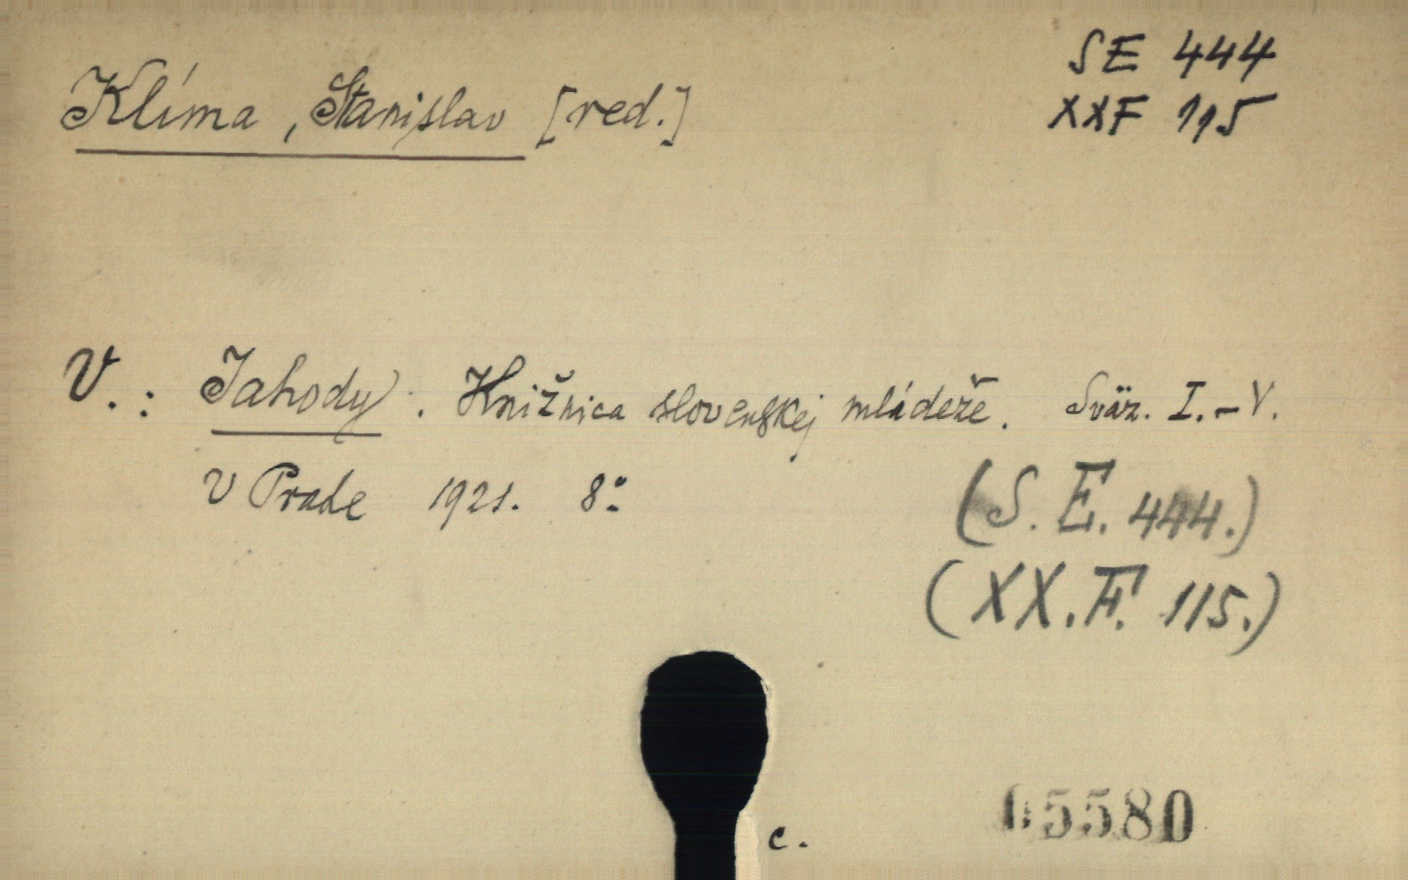 SE 444
Klíma, Stanislav [red.]
XXF 115
V.: Jahody. Knižnica slovenskej mládeže. Sväz. I.-V.
V Praze 1921. 8°
(S. E. 444.)
(XX. F. 115.)
c.
05580